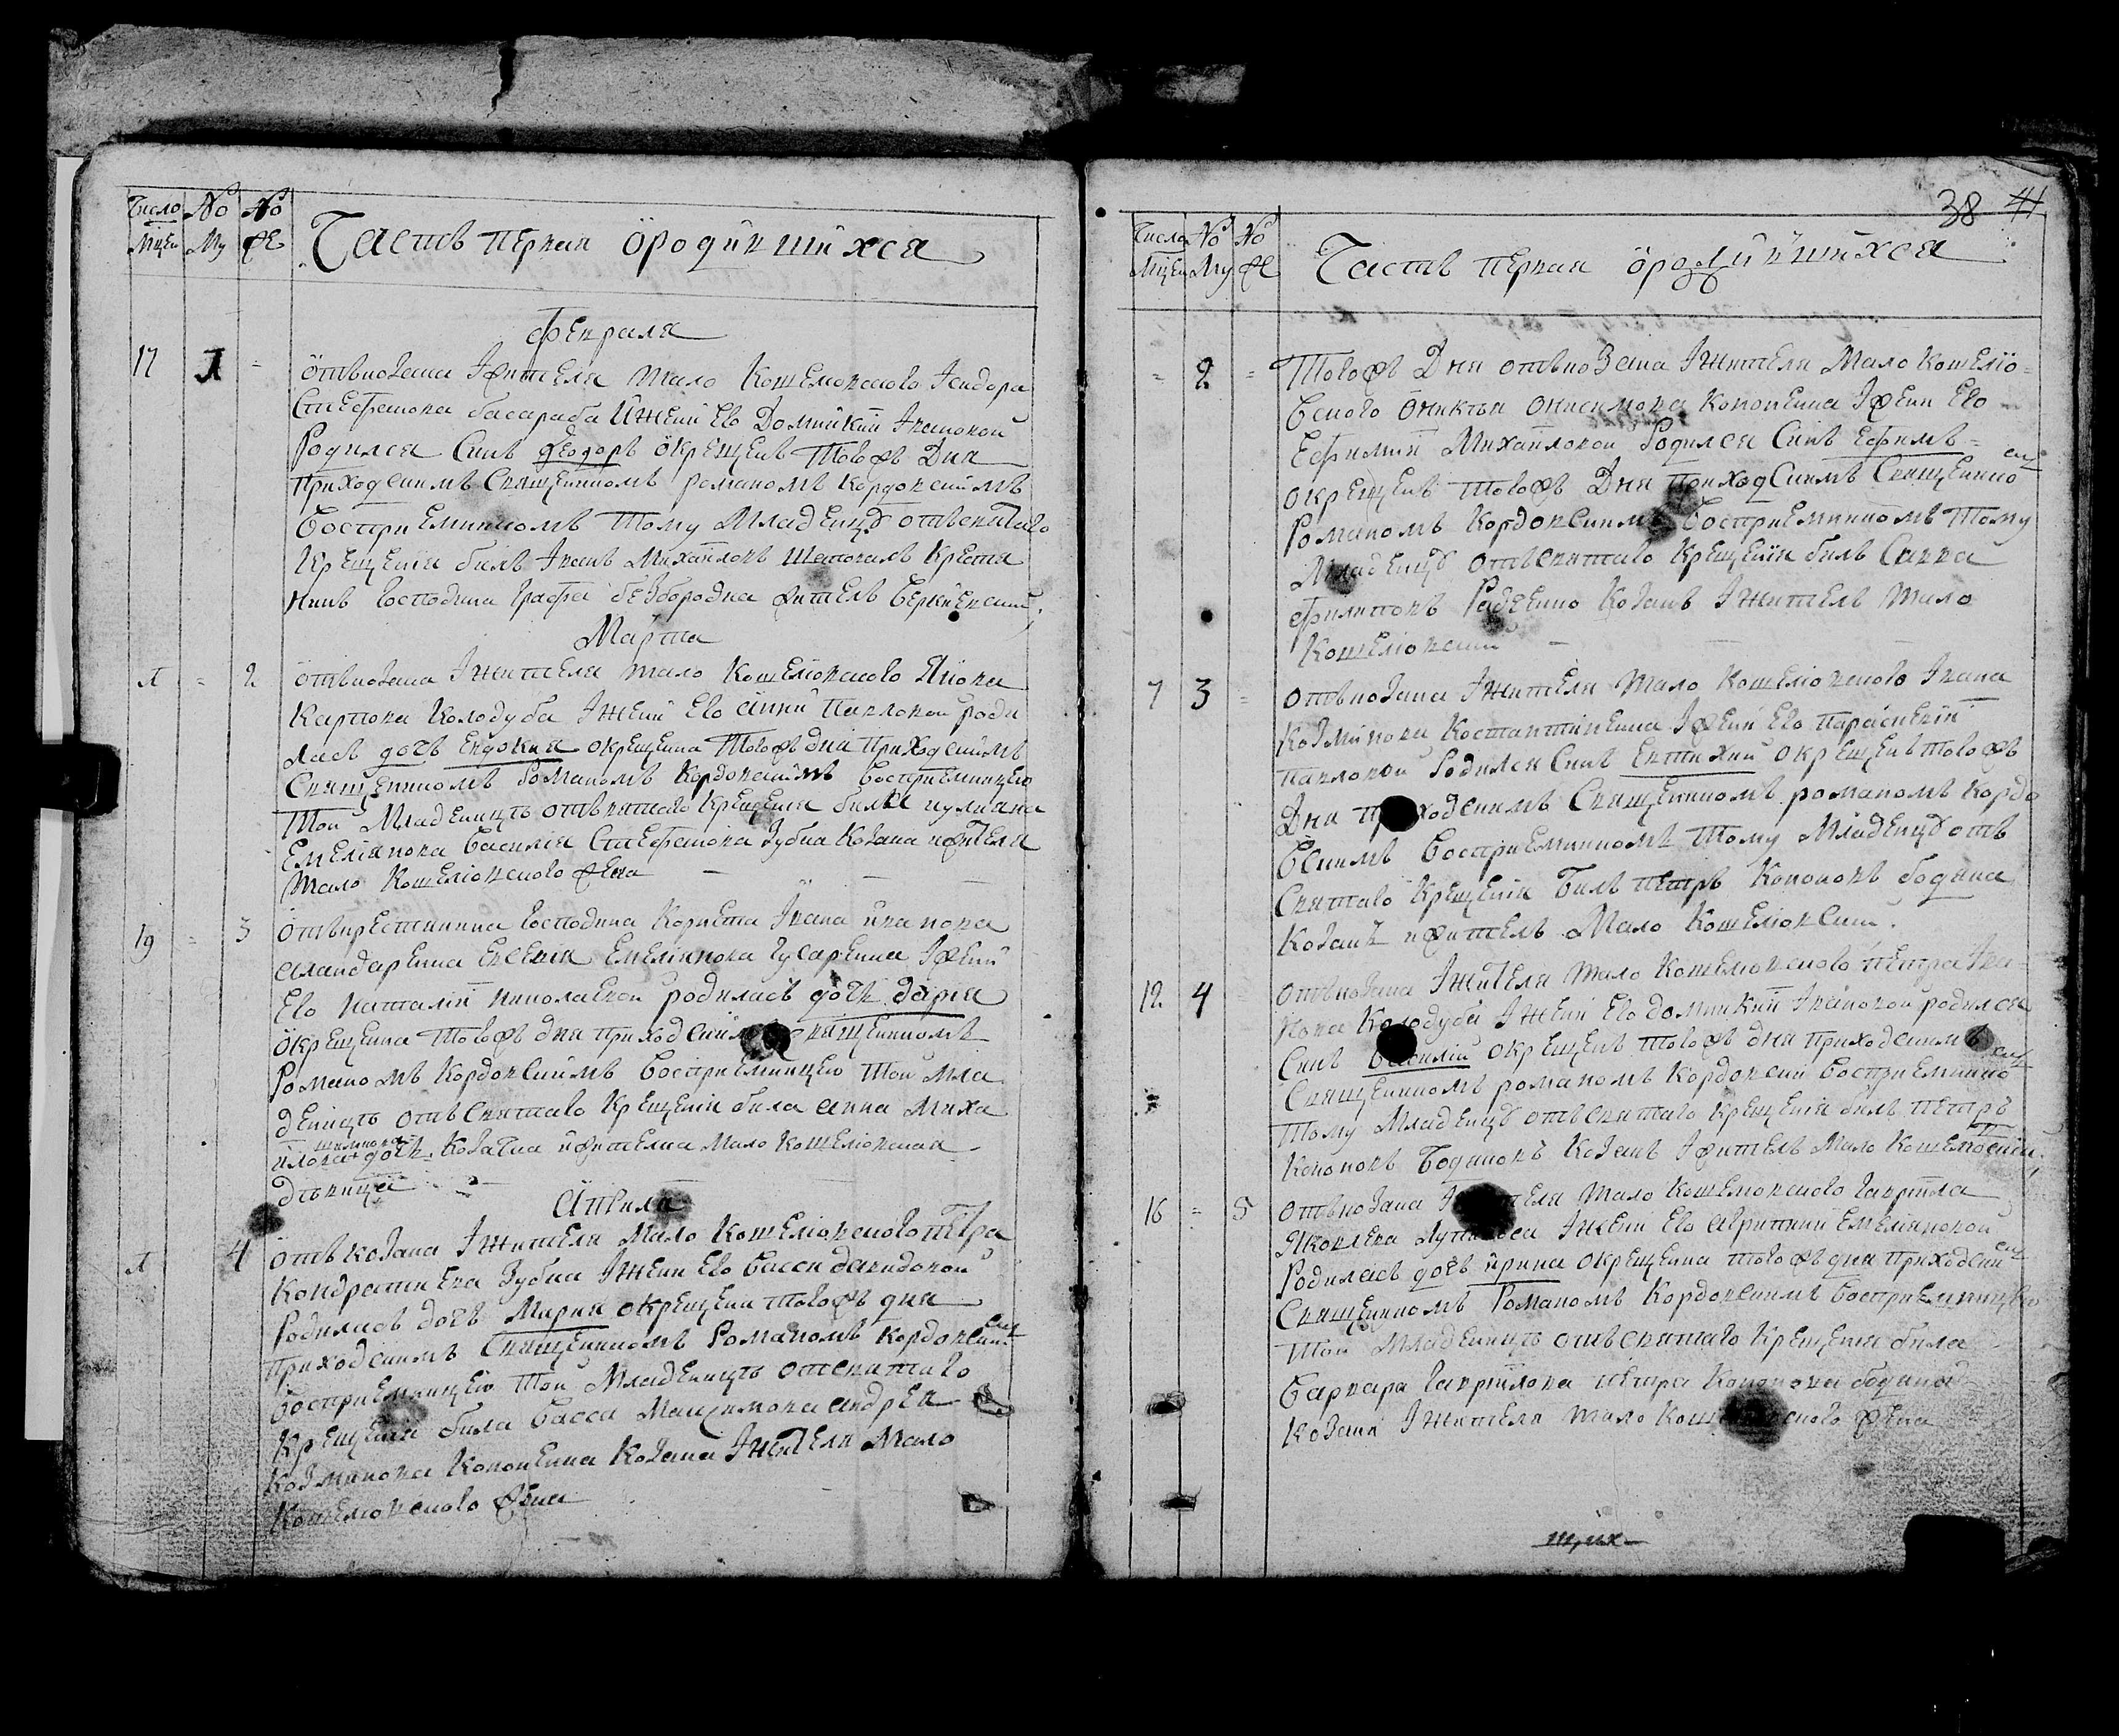 Число Мцеи
№ Му
№ Же
Часть первая о родившихся
Февраля
17 1 = От козака Жителя Мало Кошелювского Феодора
Стефанова басараба и жени Его Домникии Івановой
Родился Синъ Феодоръ окрещенъ Тогожъ Дня
приходскимъ Священникомъ романомъ Кордовскимъ
Восприемникомъ Тому Младенцу отъ святаго
Крещенія билъ Іванъ Михайловъ Шаповалъ Крестя
нинъ Господина Графа безбородка житель
Марта
1 = 2 Отъ козака Ижителя мало Кошелювского Якова
Карпова Колодуба Іжени Его анни Павловой роди
лась дочь Евдокия окрещенна Тогожъ дня приходскимъ
Священникомъ Романомъ Кордовскимъ Восприемницею
Той Младеницъ отъ святаго Крещенія била иулияна
Емеліянова Василія Стефанова Зубка Козака ижителя
Мало Кошелювского жена
19 = 3 Отъ крестянина Господина Корнета Ивана иванова
Евсевія Емелянова Гусаренка Іжени
Его Наталіи николаевой родилась дочь дарія
окрещенна Тогожъ дня приходскимъ Священникомъ
Романомъ Кордовскимъ Восприемницею Той мла
деницъ отъ Святаго Крещенія била анна Миха
йлова дочь Козачка ижителка Мало Кошелювская
дѣвица
Априля
1 4 Отъ козака Іжителя Мало Кошелювского петра
Кондратиева Зубка Іжени Его Васси давидовой
Родилась дочь Мария окрещенна тогожъ дня
приходскимъ Священникомъ Романомъ Кордовским
Восприемницею Той Младеницъ от святаго
Крещенія била Васса Максимова андрея
Козминова Кононенка Козака Іжителя Мало
Кошелювского жена
38 41
Число Мцеи
№ Му
№ Же
Часть первая о родившихся
= 2 = Тогожъ Дня отъ козака Іжителя Мало Кошелю
вского Оникія Онисимова Кононенка Іжени Его
Ефимии Михайловой Родился Синъ Ефимъ
окрещенъ тогожъ Дня приходскимъ Священико
Романомъ Кордовскимъ Восприемникомъ Тому
Младенцу отъ святаго Крещенія билъ Савва
Филиповъ Козакъ Іжитель Мало
Кошелювский
7 3 = Отъ козака Іжителя Мало Кошелювского Івана
Козминова Костантиненка Іжени Его параскевіи
павловой Родился Синъ Евтихий окрещенъ тогожъ
Дня приходскимъ Священникомъ романомъ Кордо
вскимъ Восприемникомъ Тому Младенцу отъ
Святаго Крещенія Билъ петръ Кононовъ бодака
Козакъ ижитель Мало Кошелювский.
12 4 Отъ козака Ижителя Мало Кошелювского петра Іва
нова Колодуба Іжени Его домникии Івановой родился
Синъ Василий окрещенъ тогожъ дня приходскимъ
Священникомъ романомъ Кордовский Восприемнико
Тому Младенцу отъ святаго Крещенія билъ петръ
Кононовъ Козакъ Іжитель Мало Кошелювский
16 = 5 Отъ козака Іжителя Мало Кошелювского Гаврила
Яковлева Іжени Его агрипини Емеляновой
Родилась дочь ирина окрещенна тогожъ дня приходски
Священникомъ Романомъ Кордовскимъ Восприемницею
Той Младеницъ отъ святаго Крещенія била
Варвара Гаврилова петра Кононова
Козака Іжителя Мало Кошелювского жена